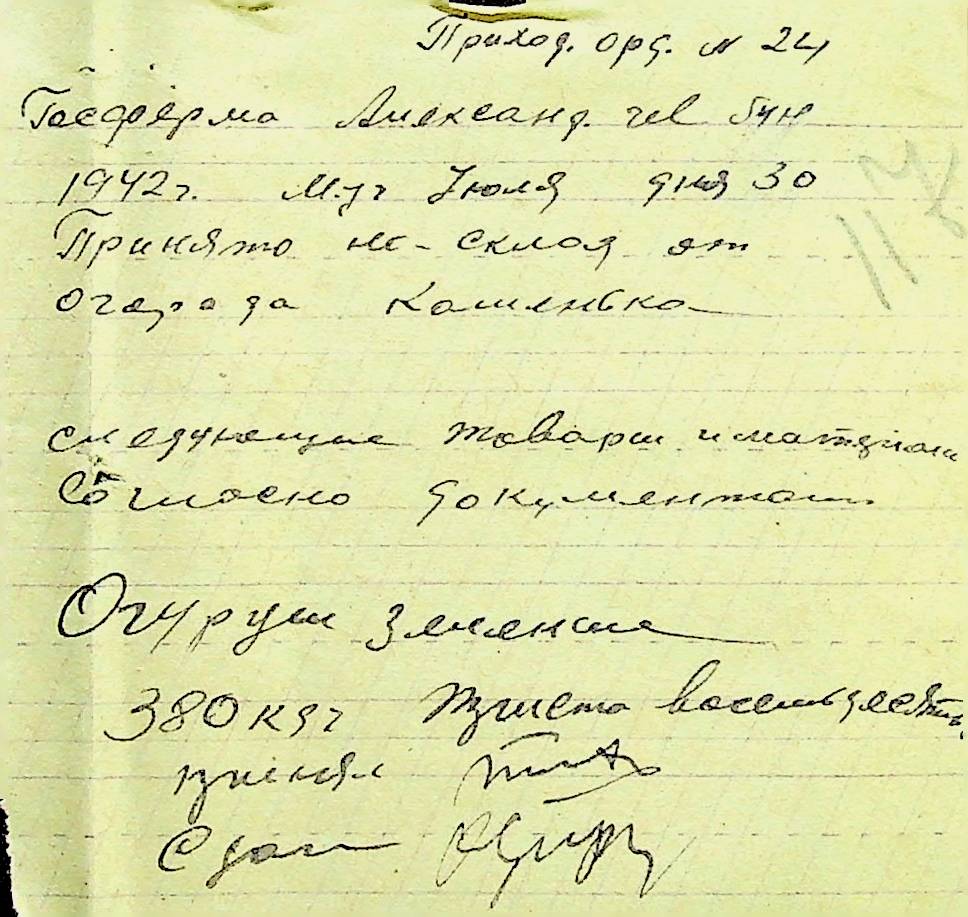 Приход. орд. № 24
Госферма Александ.
1942 г. М-ц Июля дня 30
Принято на склад от
огарода
следующие товары и матерiали
Согласно документам
Огурцы зеленые
380 кгр Триста восемьдесят
принял
Сдал